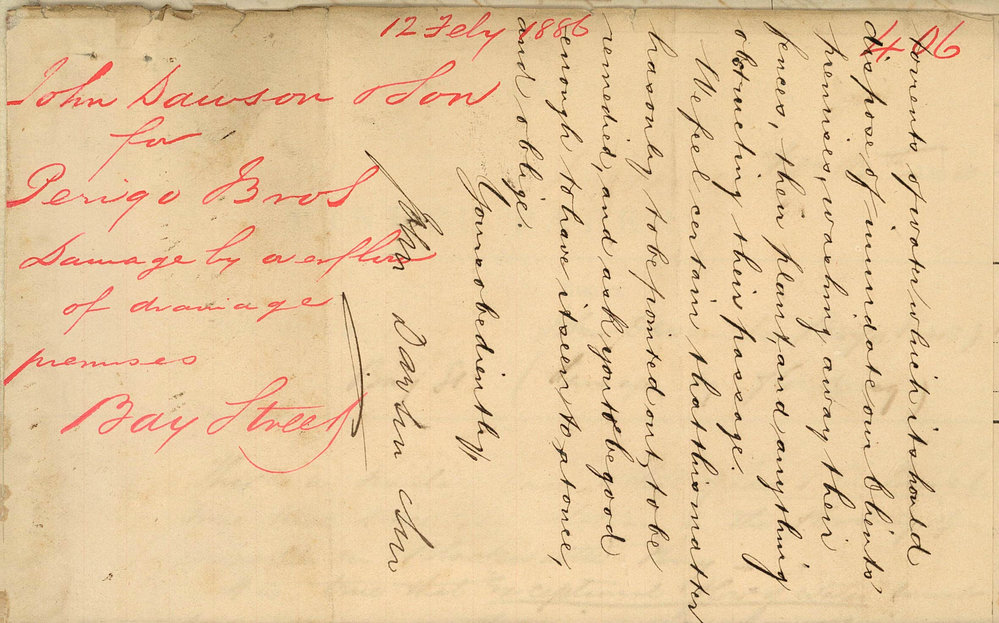 12 Feby 1886
406
John Dawson & Son
for
Perigo Bros
Damage by overflow
of drainage
premises
Bay Street
torrents of water which it should
dispose of inundate our Clients'
premises, wasting away their
fences, then plant, and anything
obstructing their passage.
We feel certain that this matter
has only to be pointed out, to be
remedied, and ask you to be good
enough to have it seen to at once,
and oblige.
Yours obediently
John Dawson & Son